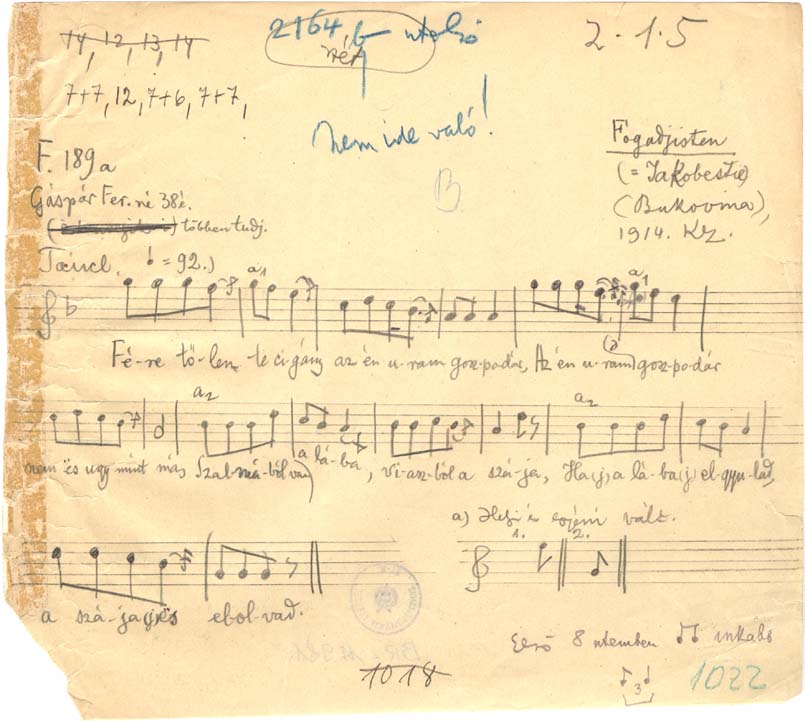 14, 12, 13, 14
2164, b utolsó
2·1·5
7+7, 12, 7+6, 7+7,
nem ide való!
F. 189a
Fogadjisten
(= Jakobestie)
Gáspár Fer.né 38é.
B
(Bukovina),
többen tudj.
1914. Kz.
Táncl. ♩ = 92.)
a1 a1
Fé-re tő-lem te ci-gány az én u-ram gosz-po-dár, Az én u-ram gosz-po-dár
a2 a2
nem és ugy mint más Szal-má-ból van a lá-ba, vi-asz-ból a szá-ja, Ha(j) a lá-ba(j) el-gyu-lad,
a) Helyi és egyéni vált.
1. 2.
a szá-ja(j) és el-ol-vad.
Első 8 ütemben ♫ inkább
3
1018
1022